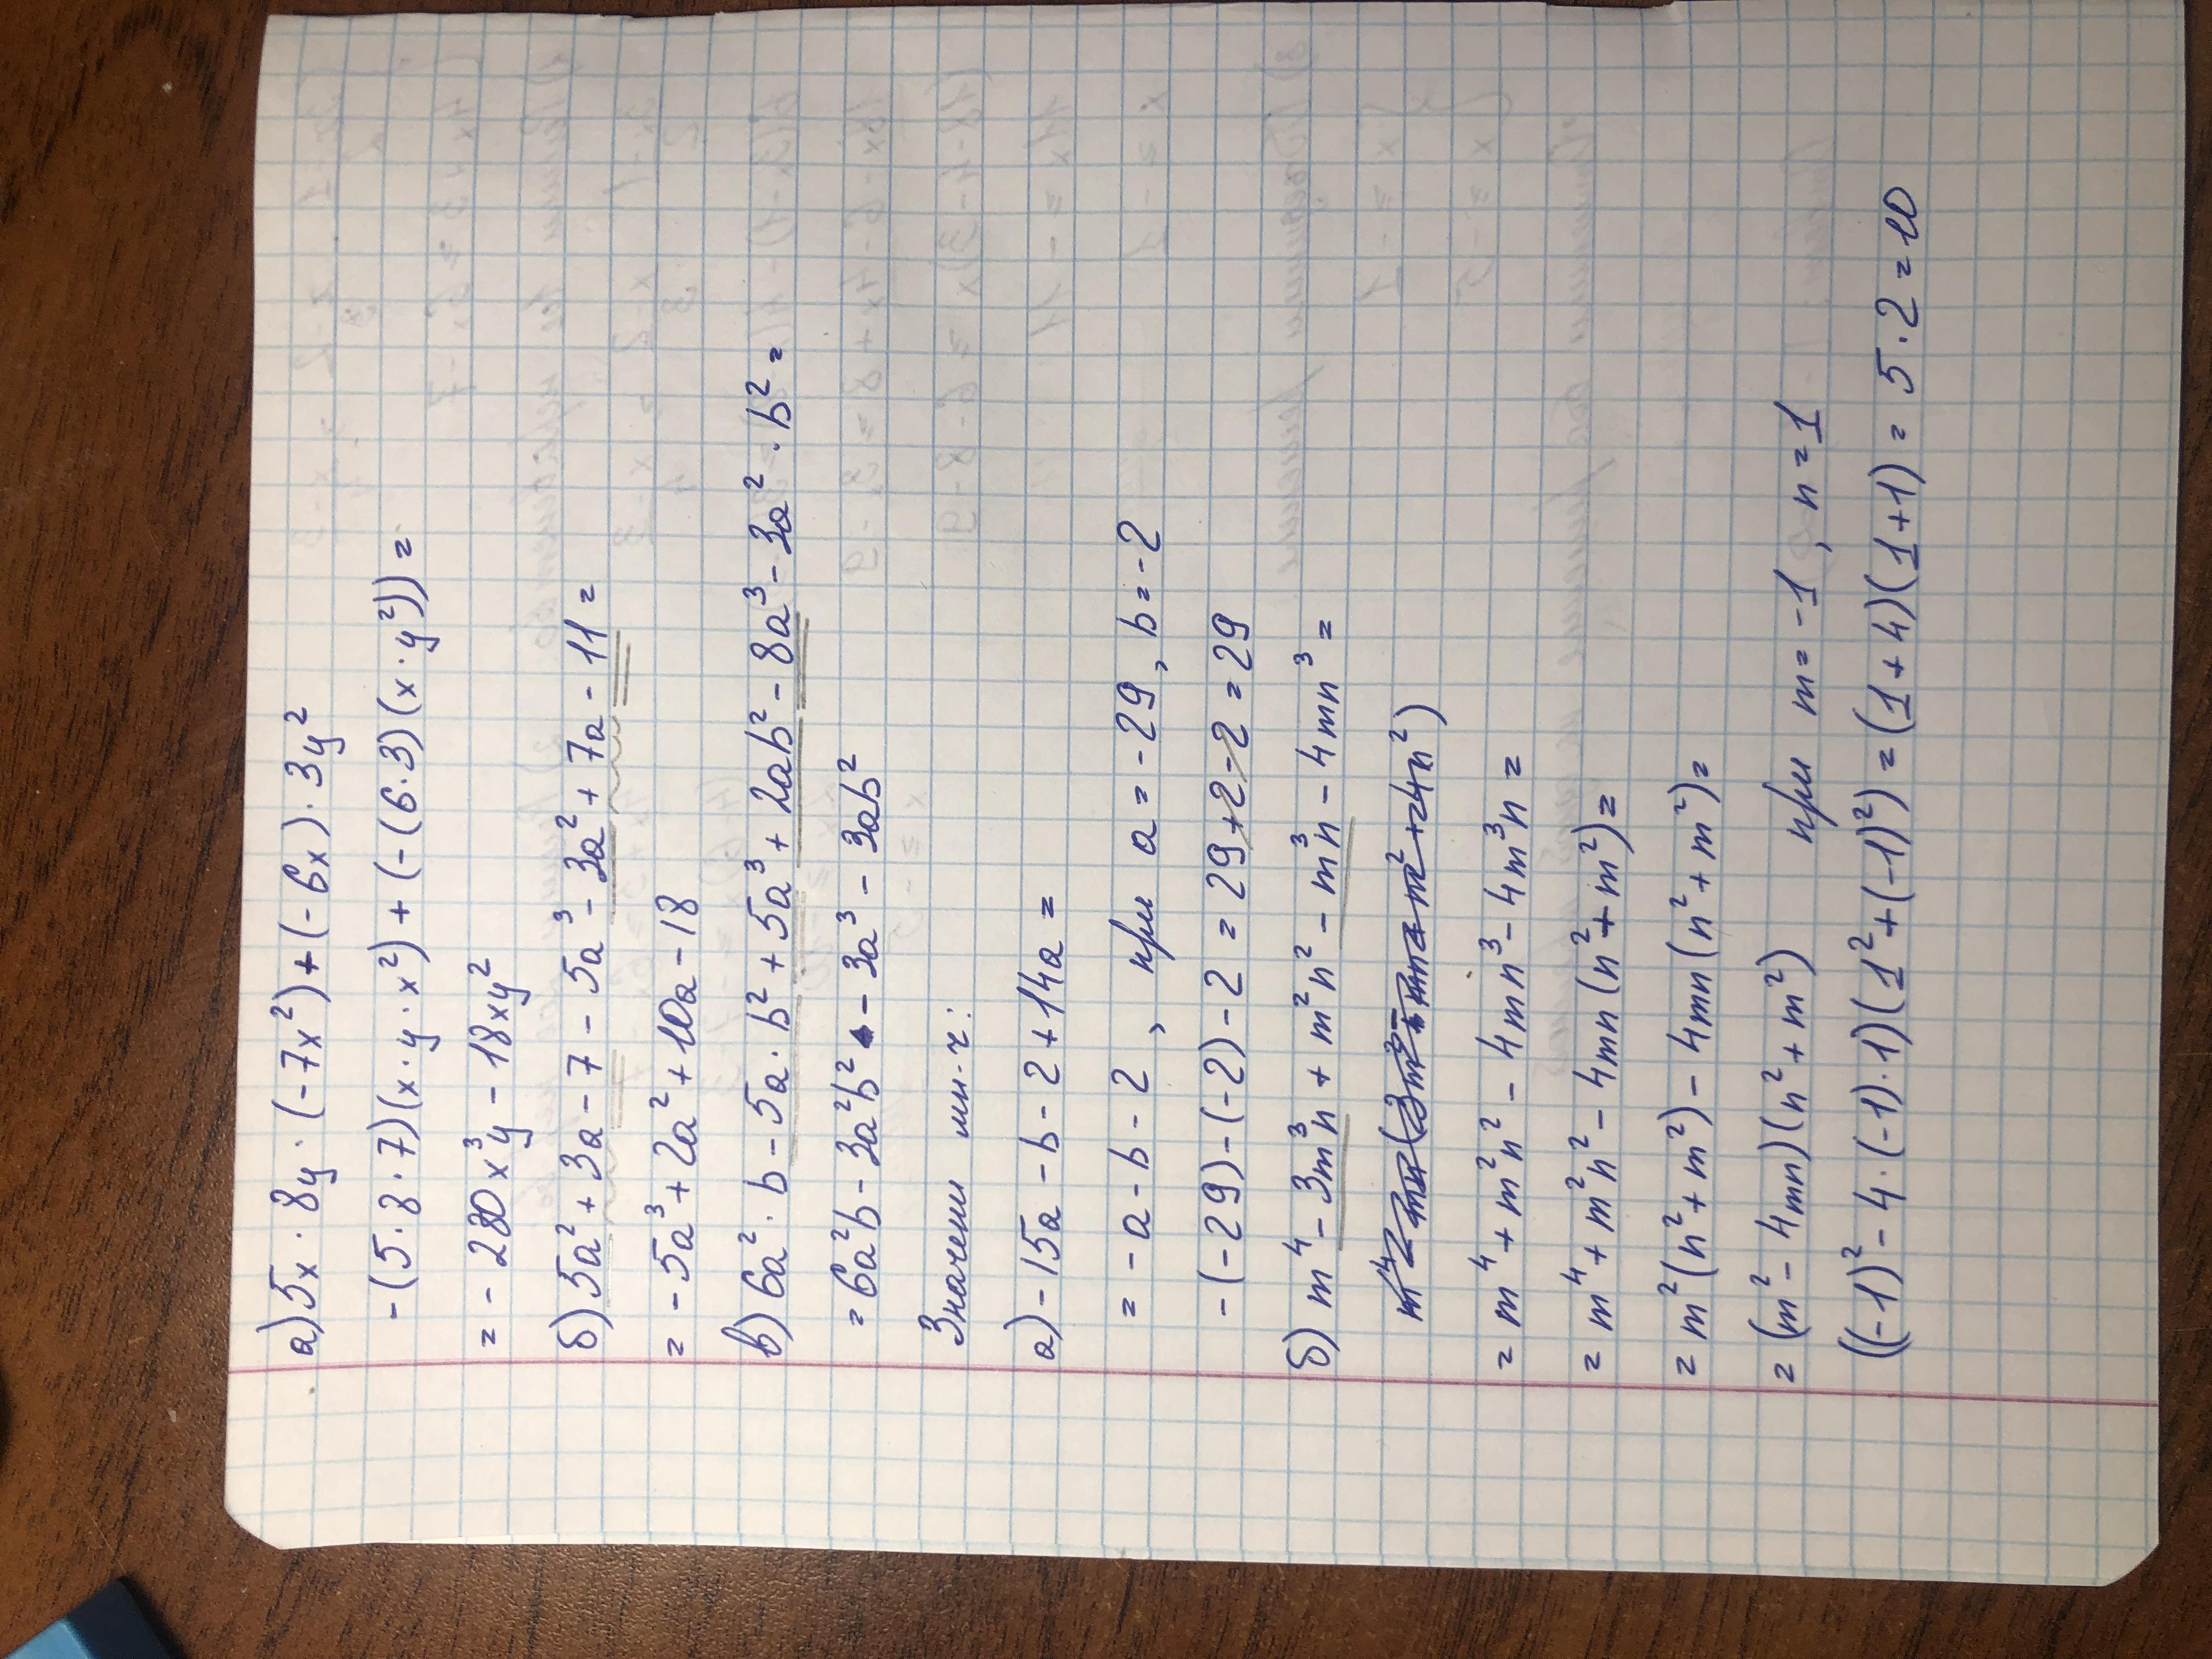 а) 5x · 8y · (-7x²) + (-6x) · 3y²
-(5·8·7)(x·y·x²) + (-(6·3)(x·y²)) =
= - 280x³y - 18xy²
б) 5a² + 3a - 7 - 5a³ - 3a² + 7a - 11 =
= - 5a³ + 2a² + 10a - 18
в) 6a² · b - 5a · b² + 5a³ + 2ab² - 8a³ - 3a² · b² =
= 6a²b - 3a²b² - 3a³ - 3ab²
Значени мн-г:
а) - 15a - b - 2 + 14a =
= - a - b - 2 , при a = -29, b = -2
- (-29) - (-2) - 2 = 29 + 2 - 2 = 29
б) m⁴ - 3m³n + m²n² - m³n - 4mn³ =
= m⁴ + m²n² - 4mn³ - 4m³n =
= m⁴ + m²n² - 4mn (n² + m²) =
= m² (n² + m²) - 4mn (n² + m²) =
= (m² - 4mn)(n² + m²) при m = -1 , n = 1
((-1)² - 4 · (-1) · 1)(1² + (-1)²) = (1 + 4)(1 + 1) = 5 · 2 = 10